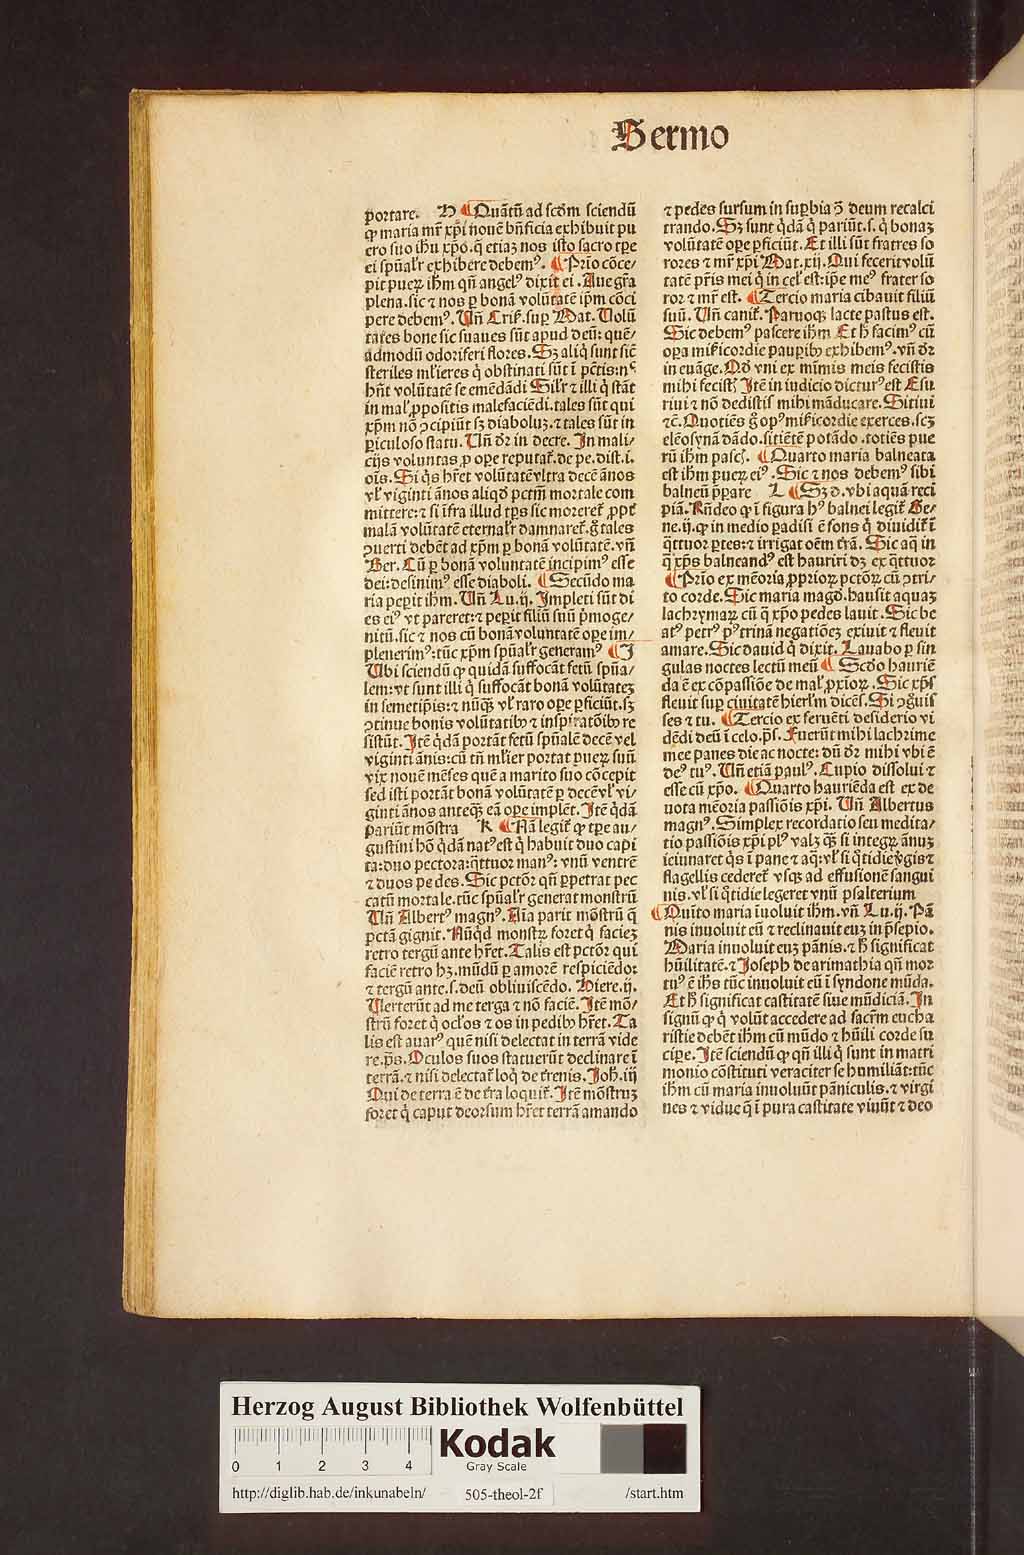 Sermo
portare. H ¶ Quātū ad scdm sciendū
ꝙ maria mr̄ xp̄i nouē bn̄ficia exhibuit pu
ero suo ihū xp̄o. q̄ etiaꝫ nos isto sacro tꝑe
ei spūalr̄ exhibere debemꝰ. ¶ Prīo cōce/
pit pueꝝ ihm̄ qn̄ angelꝰ dixit ei. Aue gr̄a
plena. sic ⁊ nos ꝑ bonā volūtatē ip̄m cōci
pere debemꝰ. Vn̄ Criſ. suꝑ Mat. Volū
tates bone sic suaues sūt apud deū: quē/
admodū odoriferi flores. Sꝫ aliq̄ sunt sic̄
steriles mlieres q̇ obstinati sūt ī pctīs: nᶜ
hn̄t volūtatē se emēdādi Silr̄ ⁊ illi q̇ stāt
in mal ꝓpositis malefaciēdi. tales sūt qui
xp̄m nō ꝯcipiūt sꝫ diaboluꝫ. ⁊ tales sūt in
ꝑiculoso statu. Vn̄ dr̄ in decre. In mali/
cijs voluntas ꝓ oꝑe reputat̄. de pe. dist. i.
ois. Si q̇s hr̄et volūtatē vltra decē ānos
vl̓ viginti ānos aliqd̓ pctm̄ mortale com
mittere: ⁊ si īfra illud tp̄s sic moreret̄ ꝓpt̄
malā volūtatē eternalr̄ damnaret̄. g̊ tales
ꝯuerti debēt ad xp̄m ꝑ bonā volūtatē. vn̄
Ber. Cū ꝑ bonā voluntatē incipimꝰ esse
dei: desinimꝰ esse diaboli. ¶ Secūdo ma
ria peꝑit ihm̄. Vn̄ Lu. ij. Impleti sūt di
es eiꝰ vt pareret: ⁊ peꝑit filiū suū pͥmoge/
nitū. sic ⁊ nos cū bonā voluntatē oꝑe im/
plenerimꝰ: tūc xp̄m spūalr̄ generamꝰ ¶ I
Vbi sciendū ꝙ quidā suffocāt fetū spūa/
lem: vt sunt illi q̇ suffocāt bonā volūtateꝫ
in semetip̄is: ⁊ nūqꝫ vl̓ raro oꝑe ꝑficiūt. sꝫ
ꝯtinue bonis volūtatibꝰ ⁊ inspiratōibꝰ re
sistūt. Itē q̇dā portāt fetū spūalē decē vel
viginti ānis: cū tn̄ mlier portat pueꝝ suū
vix nouē mēses quē a marito suo cōcepit
sed isti portāt bonā volūtatē ꝑ decē vl̓ vi/
ginti ānos anteqꝫ eā oꝑe implēt. Itē q̇dā
pariūt mōstra K ¶ Nā legit̄ ꝙ tꝑe au/
gustini hō q̇dā natꝰ est q̇ habuit duo capi
ta: duo pectora: q̄ttuor manꝰ: vnū ventrē
⁊ duos pedes. Sic pctōr qn̄ ꝑpetrat pec
catū mortale. tūc spūalr̄ generat monstrū
Vn̄ Albertꝰ magnꝰ. Aīa parit mōstrū q̄
pctā gignit. Nūqd monstꝝ foret q̇ facieꝫ
retro tergū ante hr̄et. Talis est pctōr qui
faciē retro hꝫ. mūdū ꝑ amorē respiciēdo:
⁊ tergū ante. s. deū obliuiscēdo. Hiere. ij.
Verterūt ad me terga ⁊ nō faciē. Itē mō/
strū foret q̇ oclos ⁊ os in pedibꝰ hr̄et. Ta
lis est auarꝰ quē nisi delectat in terrā vide
re. ps̄. Oculos suos statuerūt declinare ī
terrā. ⁊ nisi delectat̄ loq̇ de trenis. Joh. iij
Qui de terra ē de tra loquit̄. Itē mōstruꝫ
foret q̇ caput deorsum hr̄et terrā amando
⁊ pedes sursum in suꝑbia ꝯ̄ deum recalci
trando. Sꝫ sunt q̇dā q̇ pariūt. s. q̇ bonaꝫ
volūtatē oꝑe ꝑficiūt. Et illi sūt fratres so
rores ⁊ mr̄ xp̄i Mat. xij. Qui fecerit volū
tatē pr̄is mei q̇ in cel est: ip̄e meꝰ frater so
ror ⁊ mr̄ est. ¶ Tercio maria cibauit filiū
suū. Vn̄ canit̄. Paruoqꝫ lacte pastus est.
Sic debemꝰ pascere ihm̄ Et h̄ facimꝰ cū
oꝑa mīcordie pauꝑibꝰ exhibemꝰ. vn̄ dr̄
in euāge. Qd̓ vni ex mīmis meis fecistis
mihi fecist. Itē in iudicio dicturꝰ est Esu
riui ⁊ nō dedistis mihi māducare. Sitiui
⁊c̄. Quotiēs g̊ opꝰ mīcordie exerces. scꝫ
eleōsynā dādo. sitiētē potādo. totiēs pue
rū ihm̄ pasc̄. ¶ Quarto maria balneata
est ihm̄ pueꝝ eiꝰ. Sic ⁊ nos debemꝰ sibi
balneū pͥpare L ¶ Sꝫ d. vbi aquā reci
piā. Rn̄deo ꝙ ī figura hꝰ balnei legit̄ Ge/
ne. ij. ꝙ in medio ꝑadisi ē fons q̇ diuidit̄ ī
q̄ttuor ꝑtes: ⁊ irrigat oēm trā. Sic aq̄ in
q̄ xp̄s balneandꝰ est hauriri dꝫ ex q̄ttuor
¶ Prīo ex mēoria ꝓprioꝝ pctōꝝ cū ꝯtri/
to corde. Sic maria magd̓. hausit aquaꝫ
lachrymaꝝ cū q̄ xp̄o pedes lauit. Sic be
atꝰ petrꝰ pꝰ trinā negatiōeꝫ exiuit ⁊ fleuit
amare. Sic dauid q̇ dixit. Lauabo ꝑ sin
gulas noctes lectū meū ¶ Scd̓o hauriē
da ē ex cōpassiōe de mal ꝓxīoꝝ. Sic xp̄s
fleuit suꝑ ciuitatē hierl̄m dicēs. Si ꝯg̊uis
ses ⁊ tu. ¶ Tercio ex feruēti desiderio vi
dēdi deū ī celo. ps̄. Fuerūt mihi lachrime
mee panes die ac nocte: dū dr̄ mihi vbi ē
deꝰ tuꝰ. Vn̄ etiā paulꝰ. Cupio dissolui ⁊
esse cū xp̄o. ¶ Quarto hauriēda est ex de
uota mēoria passiōis xp̄i. Vn̄ Albertus
magnꝰ. Simplex recordatio seu medita/
tio passiōis xp̄i plꝰ valꝫ qꝫ si integꝝ ānuꝫ
ieiunaret q̇s ī pane ⁊ aq̄: vl̓ si q̇tidie v̓gis ⁊
flagellis cederet̄ vsqꝫ ad effusionē sangui
nis. vl̓ si q̇tidie legeret vnū psalterium
¶ Quīto maria īuoluit ihm̄. vn̄ Lu. ij. Pā
nis inuoluit eū ⁊ reclinauit euꝫ in pͥsepio.
Maria inuoluit euꝫ pānis. ⁊ h̄ significat
hūilitatē. ⁊ Joseph de arimathia qn̄ mor
tuꝰ ē ihs̄ tūc inuoluit eū ī syndone mūda.
Et h̄ significat castitatē siue mūdiciā. In
signū ꝙ q̇ volūt accedere ad sacrm̄ eucha
ristie debēt ihm̄ cū mūdo ⁊ hūili corde su
ciꝑe. Itē sciendū ꝙ qn̄ illi q̇ sunt in matri
monio cōstituti veraciter se humiliāt: tūc
ihm̄ cū maria inuoluūt pāniculis. ⁊ virgi
nes ⁊ vidue q̄ ī pura castitate viuūt ⁊ deo
Herzog August Bibliothek Wolfenbüttel
0 1 2 3 4
Kodak
Gray Scale
http://diglib.hab.de/inkunabeln/ 505-theol-2f /start.htm